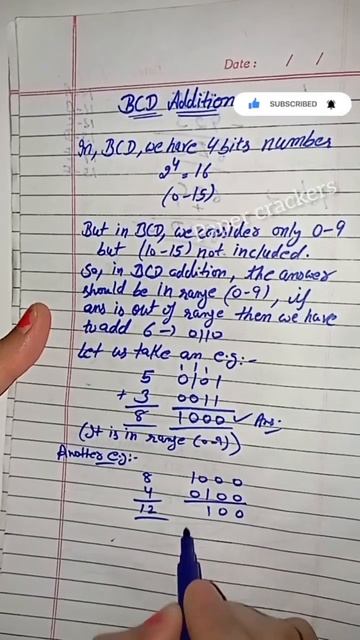 Date: / /
BCD Addition
SUBSCRIBED
In, BCD, we have 4 bits number
2⁴ = 16
(0-15)
crackers
But in BCD, we consider only 0-9
but (10-15) not included.
So, in BCD addition, the answer
should be in range (0-9), if
ans is out of range then we have
to add 6 → 0110
Let us take an e.g:-
1 1 1
5 0101
+ 3 0011
8 1000 ✓ Ans.
(It is in range (0-9))
Another e.g:-
8 1000
4 0100
12 100